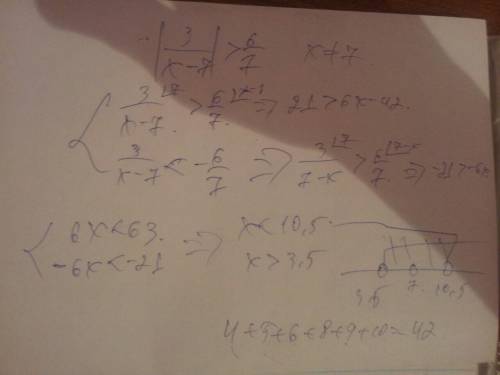 |3/(x-7)| > 6/7   x≠7
{ 3/(x-7) |7 > 6/7 ⇒ 21 > 6x-42
3/(x-7) < -6/7 ⇒ 3/(7-x) |7 > 6/7 |7-x ⇒ -21 > -6x
{ 6x < 63. ⇒ x < 10,5
-6x < -21   x > 3,5
3,5 7. 10,5
4+5+6+8+9+10=42